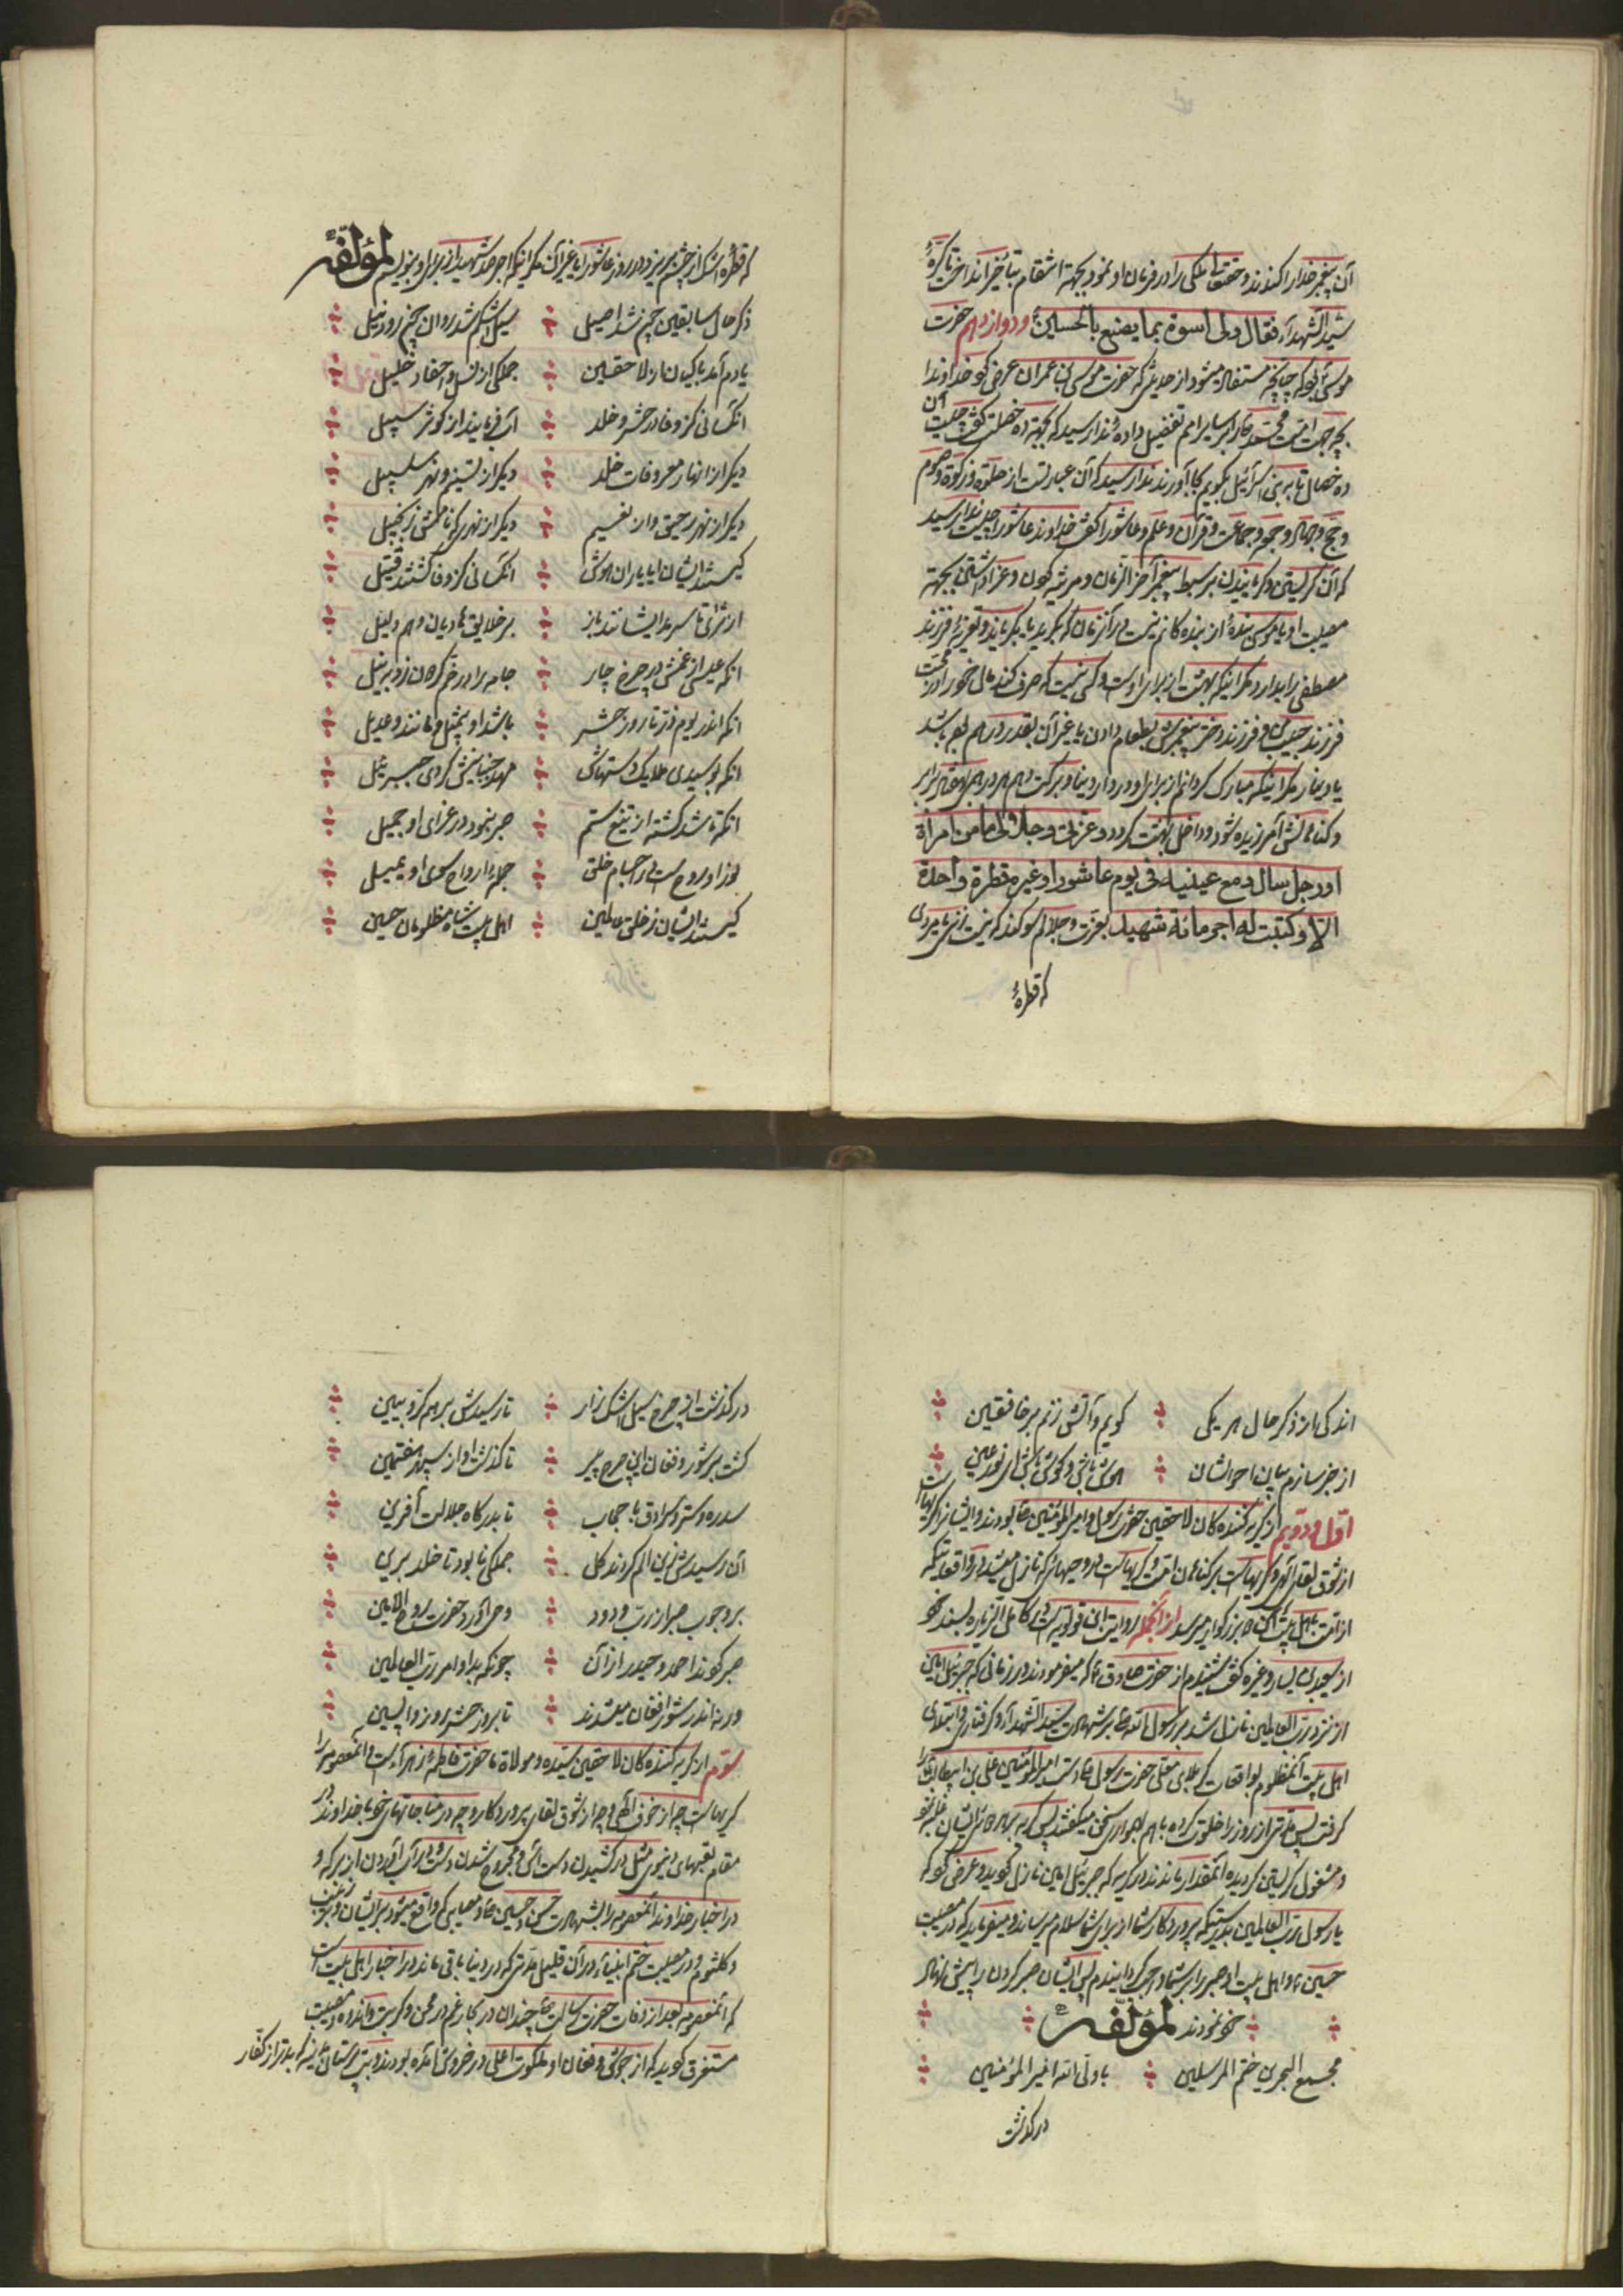 آن پیغمبر خدا را کندند و حقتعالی ملکی را در فرمان او نمود بجهة انتقام بتأخیر انداخت تا کریهٔ
سید الشهداء فقال ولی اسوة بما یصنع بالحسینؑ و دوازدهم حضرت
موسی بود که چنانچه مستفاد میشود از حدیثی که حضرت موسی بن عمران عرض کرد خداوندا
بچه جهت امت محمد را بر سایر امم تفضیل دادهٔ ندا رسید که بجهة ده خصلت گفت چیست آن
ده خصال تا به بنی اسرائیل بگویم بجا آورند ندا رسید که آن عبارتست از صلوة و زکوة و صوم
و حج و جهاد و جمعه و جماعت و قرآن و علم و عاشورا گفت خداوندا عاشورا چیست ندا رسید
که آن گریستن و گریانیدن بر سبط پیغمبر آخر الزمان و مرثیه خوان و عزا داشتن بجهة
مصیبت او یا موسی بندهٔ از بنده کانم نیست در آنزمان که بگرید یا بگریاند و تعزیهٔ فرزند
مصطفی را بدارد مگر اینکه بهشت از برای اوست و کسی نیست که صرف کند مال خود را در محبت
فرزند حبیب من و فرزند دختر پیغمبرش بطعام دادن یا غیر آن بقدر درهم بوده باشد
یا دینار مگر اینکه مبارک گردانم از برای او در دار دنیا و برکت دهم هر درهمی هفتاد برابر
و گناهانش آمرزیده شود و داخل بهشت گردد و عزتی و جلالی ما من امرأة
او رجل سال دمع عینیه فی یوم عاشورا و غیره قطرة واحدة
الا و کتبت له اجر مائة شهید بعزت و جلالم سوگند که نیست زنی یا مردی
که قطرهٔ
که قطره اشک از چشم بریزد در روز عاشورا یا غیر آن مگر اینکه اجر صد شهید از برای او بنویسم لمؤلفه
ذکر حال سابقین چون شد اصیل ؞ سیل اشکم شد روان چون رود نیل
یادم آمد باکیان از لاحقین ؞ جملکی از نسل و احفاد خلیل
آنکسانی کز وفا در حشر و خلد ؞ آب فرمایند از کوثر سبیل
دیگر از انهار معروفات خلد ؞ دیگر از تسنیم و نهر سلسبیل
دیگر از نهر رحیق و از نعیم ؞ دیگر از نهری که نامش زنجبیل
کیستند ایشان ایا یاران هوش ؞ آنکسانی کز وفا گشتند قتیل
از ثری تا سر مد ایشانند باز ؞ بر خلایق هادیان و هم دلیل
آنکه عیسی از غمش در چرخ چار ؞ جامه را در خم گردان زد به نیل
آنکه اندر یوم ذر تا روز حشر ؞ باشد او بیمثل و مانند و عدیل
آنکه بوسیدی ملایک دستهاش ؞ مهد جنبانیش کردی جبرئیل
آنکه تا شد کشته از تیغ ستم ؞ صبر بنمود در عزای او جمیل
نور او روح است در اجسام خلق ؞ جمله ارواح سوی او یمیل
کیستند ایشان ز خلق عالمین ؞ اهل بیت شاه مظلومان حسین
اندکی از ذکر حال هر یکی ؞ گویم و آتش زنم بر خافقین
از خبر سازم بیان احوالشان ؞ هوش باش و گوش باش ای نور عین
اول و دویم از گریه کننده کان لاحقین حضرت رسول و امیر المؤمنین بودند و ایشان را گریهاست
از شوق لقای الهی و گریهاست بر گناهان امت و گریهاست در وحیهائی که نازل میشد در واقعه اینکه
از امت باهل بیت آن بزرگوار میرسد از آنجمله روایت ابن قولویه است در کامل الزیاره بسند خود
از سعید بن یسار و غیره گفت شنیدم از حضرت صادقؑ که میفرمودند در زمانی که جبرئیل امین
از نزد رب العالمین نازل شد بر رسول خدا بر شهادت سید الشهداء و گرفتاری و ابتلای
اهل بیت آنمظلوم بواقعات کربلای معلی حضرت رسول دست امیر المؤمنین علی بن ابیطالب را
گرفت پس مدتی از روز را خلوت کرده باهم سخن میگفتند پس گریه بر هر دوی ایشان غلبه نمود
و مشغول گریستن گردیده آنمقدار ماندند در گریه که جبرئیل امین نازل گردید و عرض کرد که
یا رسول رب العالمین بدرستیکه پروردگار شما از برای شما سلام میرساند و میفرماید که در مصیبت
حسین و اهل بیت او صبر را بر شما واجب گردانیدم پس ایشان صبر کردن را پیش نهاد
؞ خود نمودند لمؤلفه ؞
مجمع البحرین ختم المرسلین ؞ با ولی الله امیر المؤمنین
درگذشت
درگذشت از چرخ سیل اشک زار ؞ تا رسیدش بر هم کروبیین
گشت پر شور و فغان این چرخ پیر ؞ تا گذشت او از سپهر هفتمین
سدره و ستر و سرادق با حجاب ؞ تا بدرگاه جلالت آفرین
آن رسیدش زین الم کردند کل ؞ جملکی نابود تا خلد برین
بر وجوب صبر از رب ودود ؞ وحی آورد حضرت روح الامین
صبر کردند احمد و حیدر از آن ؞ چونکه بد او امر رب العالمین
ورنه اندر شور افغان میشدند ؞ تا بروز حشر روز واپسین
سوم از گریه کننده کان لاحقین سیده و مولاة ما حضرت فاطمهٔ زهراء است و آنمعصومه را
گریهاست چه از خوف الهی و چه از شوق لقای پروردگار و چه در مناجاتهای خود با خداوند و در
مقام تعبهای دنیوی مثل در کشیدن دست آس و مجروح شدن دست و در آب آوردن از برکه و
در اخبار خداوند آنمعصومه را بشهادت حسن و حسین و مصایبی که واقع میشود بر ایشان و بر زینب
و کلثوم و در مصیبت ختم انبیاء در آن قلیل مدتی که در دنیا باقی ماند در اخبار اهل بیت است
که آنمعصومه بعد از وفات حضرت رسالت چندان در بحار غم در محن و کربت و اندوه و مصیبت
مستغرق گردید که از جوش و فغان او ملکوت اعلی در خروش آمده بودند و بت پرستان مدینه که بدتر از کفار